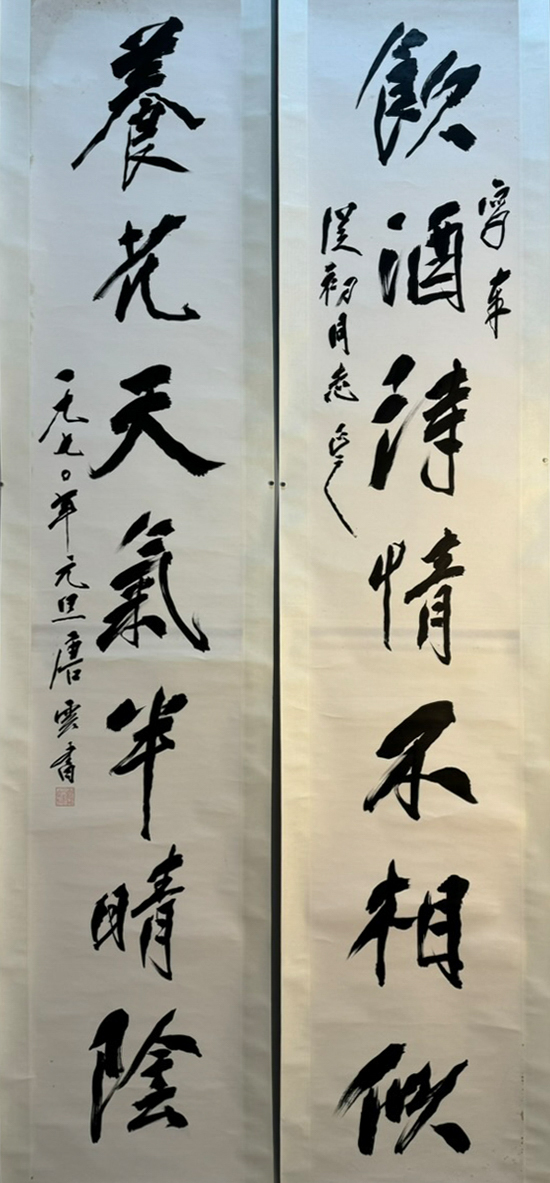 飲酒詩情不相似
初同志正之
養花天氣半晴陰
一九七〇年元旦唐雲書